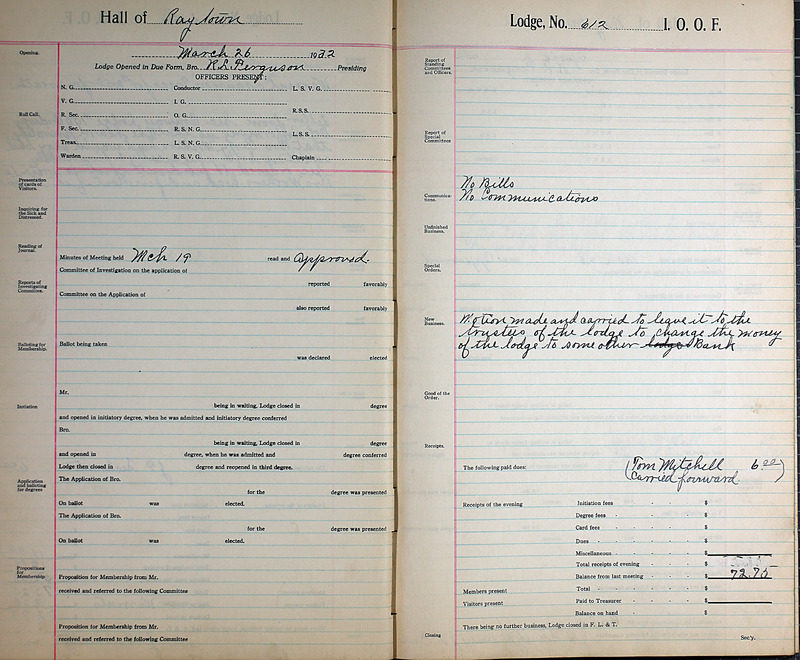 Hall of Raytown
Opening.
March 26 1932
Lodge Opened in Due Form, Bro. R.L. Ferguson Presiding
OFFICERS PRESENT:
N. G. Conductor L. S. V. G.
V. G. I. G.
R.S.S.
Roll Call.
R. Sec. O. G.
F. Sec. R. S. N. G.
L.S.S.
Treas. L. S. N. G.
Warden R. S. V. G. Chaplain
Presentation of cards of Visitors.
Inquiring for the Sick and Distressed.
Reading of Journal.
Minutes of Meeting held Mch 19 read and approved.
Committee of Investigation on the application of
Reports of Investigating Committee.
reported favorably
Committee on the Application of
also reported favorably
Balloting for Membership.
Ballot being taken
was declared elected
Mr.
Initiation
being in waiting, Lodge closed in degree
and opened in initiatory degree, when he was admitted and initiatory degree conferred
Bro.
being in waiting, Lodge closed in degree
and opened in degree, when he was admitted and degree conferred
Lodge then closed in degree and reopened in third degree.
Application and balloting for degrees
The Application of Bro.
for the degree was presented
On ballot was elected.
The Application of Bro.
for the degree was presented
On ballot was elected.
Propositions for Membership
Proposition for Membership from Mr.
received and referred to the following Committee
Proposition for Membership from Mr.
received and referred to the following Committee
Lodge, No. 612 I. O. O. F.
Report of Standing Committees and Officers.
Report of Special Committees
No Bills
Communications.
No Communications
Unfinished Business.
Special Orders.
New Business.
Motion made and carried to leave it to the
trustees of the lodge to change the money
of the lodge to some other lodge Bank
Good of the Order.
Receipts.
The following paid dues:
(Tom Mitchell 6 00)
Carried forward
Receipts of the evening Initiation fees $
Degree fees $
Card fees $
Dues $
Miscellaneous $
Total receipts of evening $
Balance from last meeting $ 72.75
Members present Total $
Visitors present Paid to Treasurer $
Balance on hand $
There being no further business, Lodge closed in F. L. & T.
Closing
Sec'y.